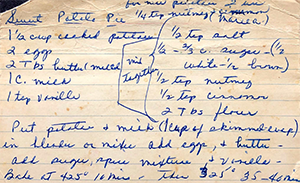 for new potatoes
1/2 tsp nutmeg
Sweet Potato Pie
1 1/2 cup cooked potatoes
1/2 tsp salt
2 eggs
1/2 - 3/4 c. sugar - (1/2
2 Tbs butter melted
white - 1/2 brown)
mix together
1 C. milk
1/2 tsp nutmeg
1 tsp vanilla
1/2 tsp cinnamon
2 Tbs flour
Put potatoes & milk (1 cup of skimmed evap)
in blender or mixer add eggs, & butter -
add sugar, spice mixture & vanilla -
Bake at 425° 10 min - then 325° 35-40 min